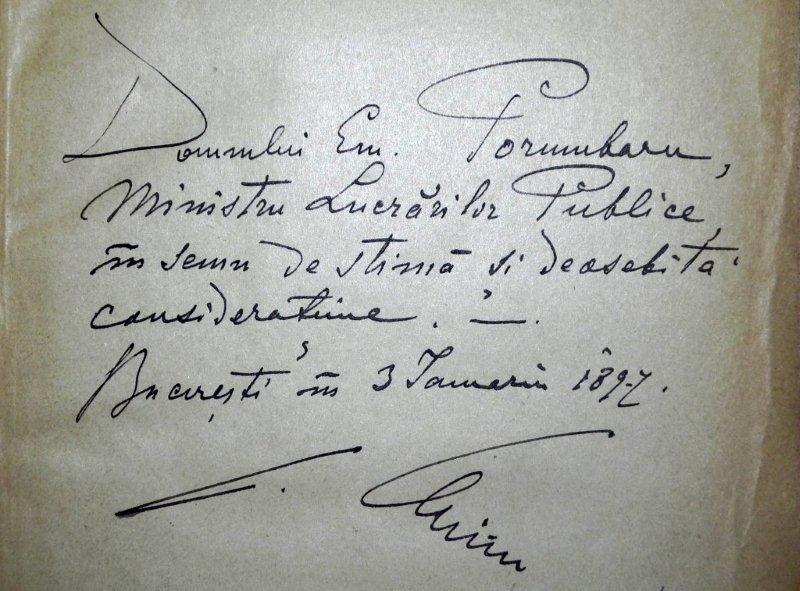 Domnului Em. Porumbaru,
Ministru Lucrărilor Publice,
în semn de stimă si deosebită
considerațiune. —.
București în 3 Ianuariu 1897.